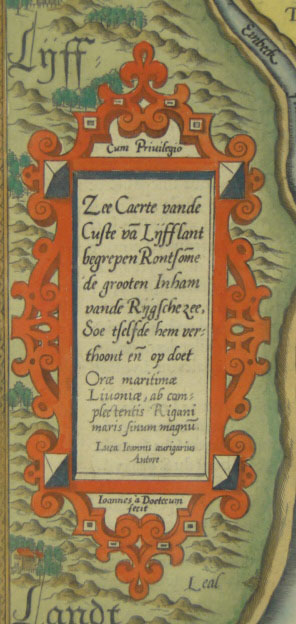 Lyff
Embeck
Cum Priuilegio
Zee Caerte vande
Custe vā Lyfflant
begrepen Rontsōme
de grooten Inham
vande Rijgsche zee,
Soe tselfde hem ver-
thoont eñ op doet
Oræ maritimæ
Liuoniæ, ab com
plectentis Rigani
maris sinum magnū
Luca Ioannis aurigarius
Autore
Ioannes à Doetecum
fecit
Leal
Landt